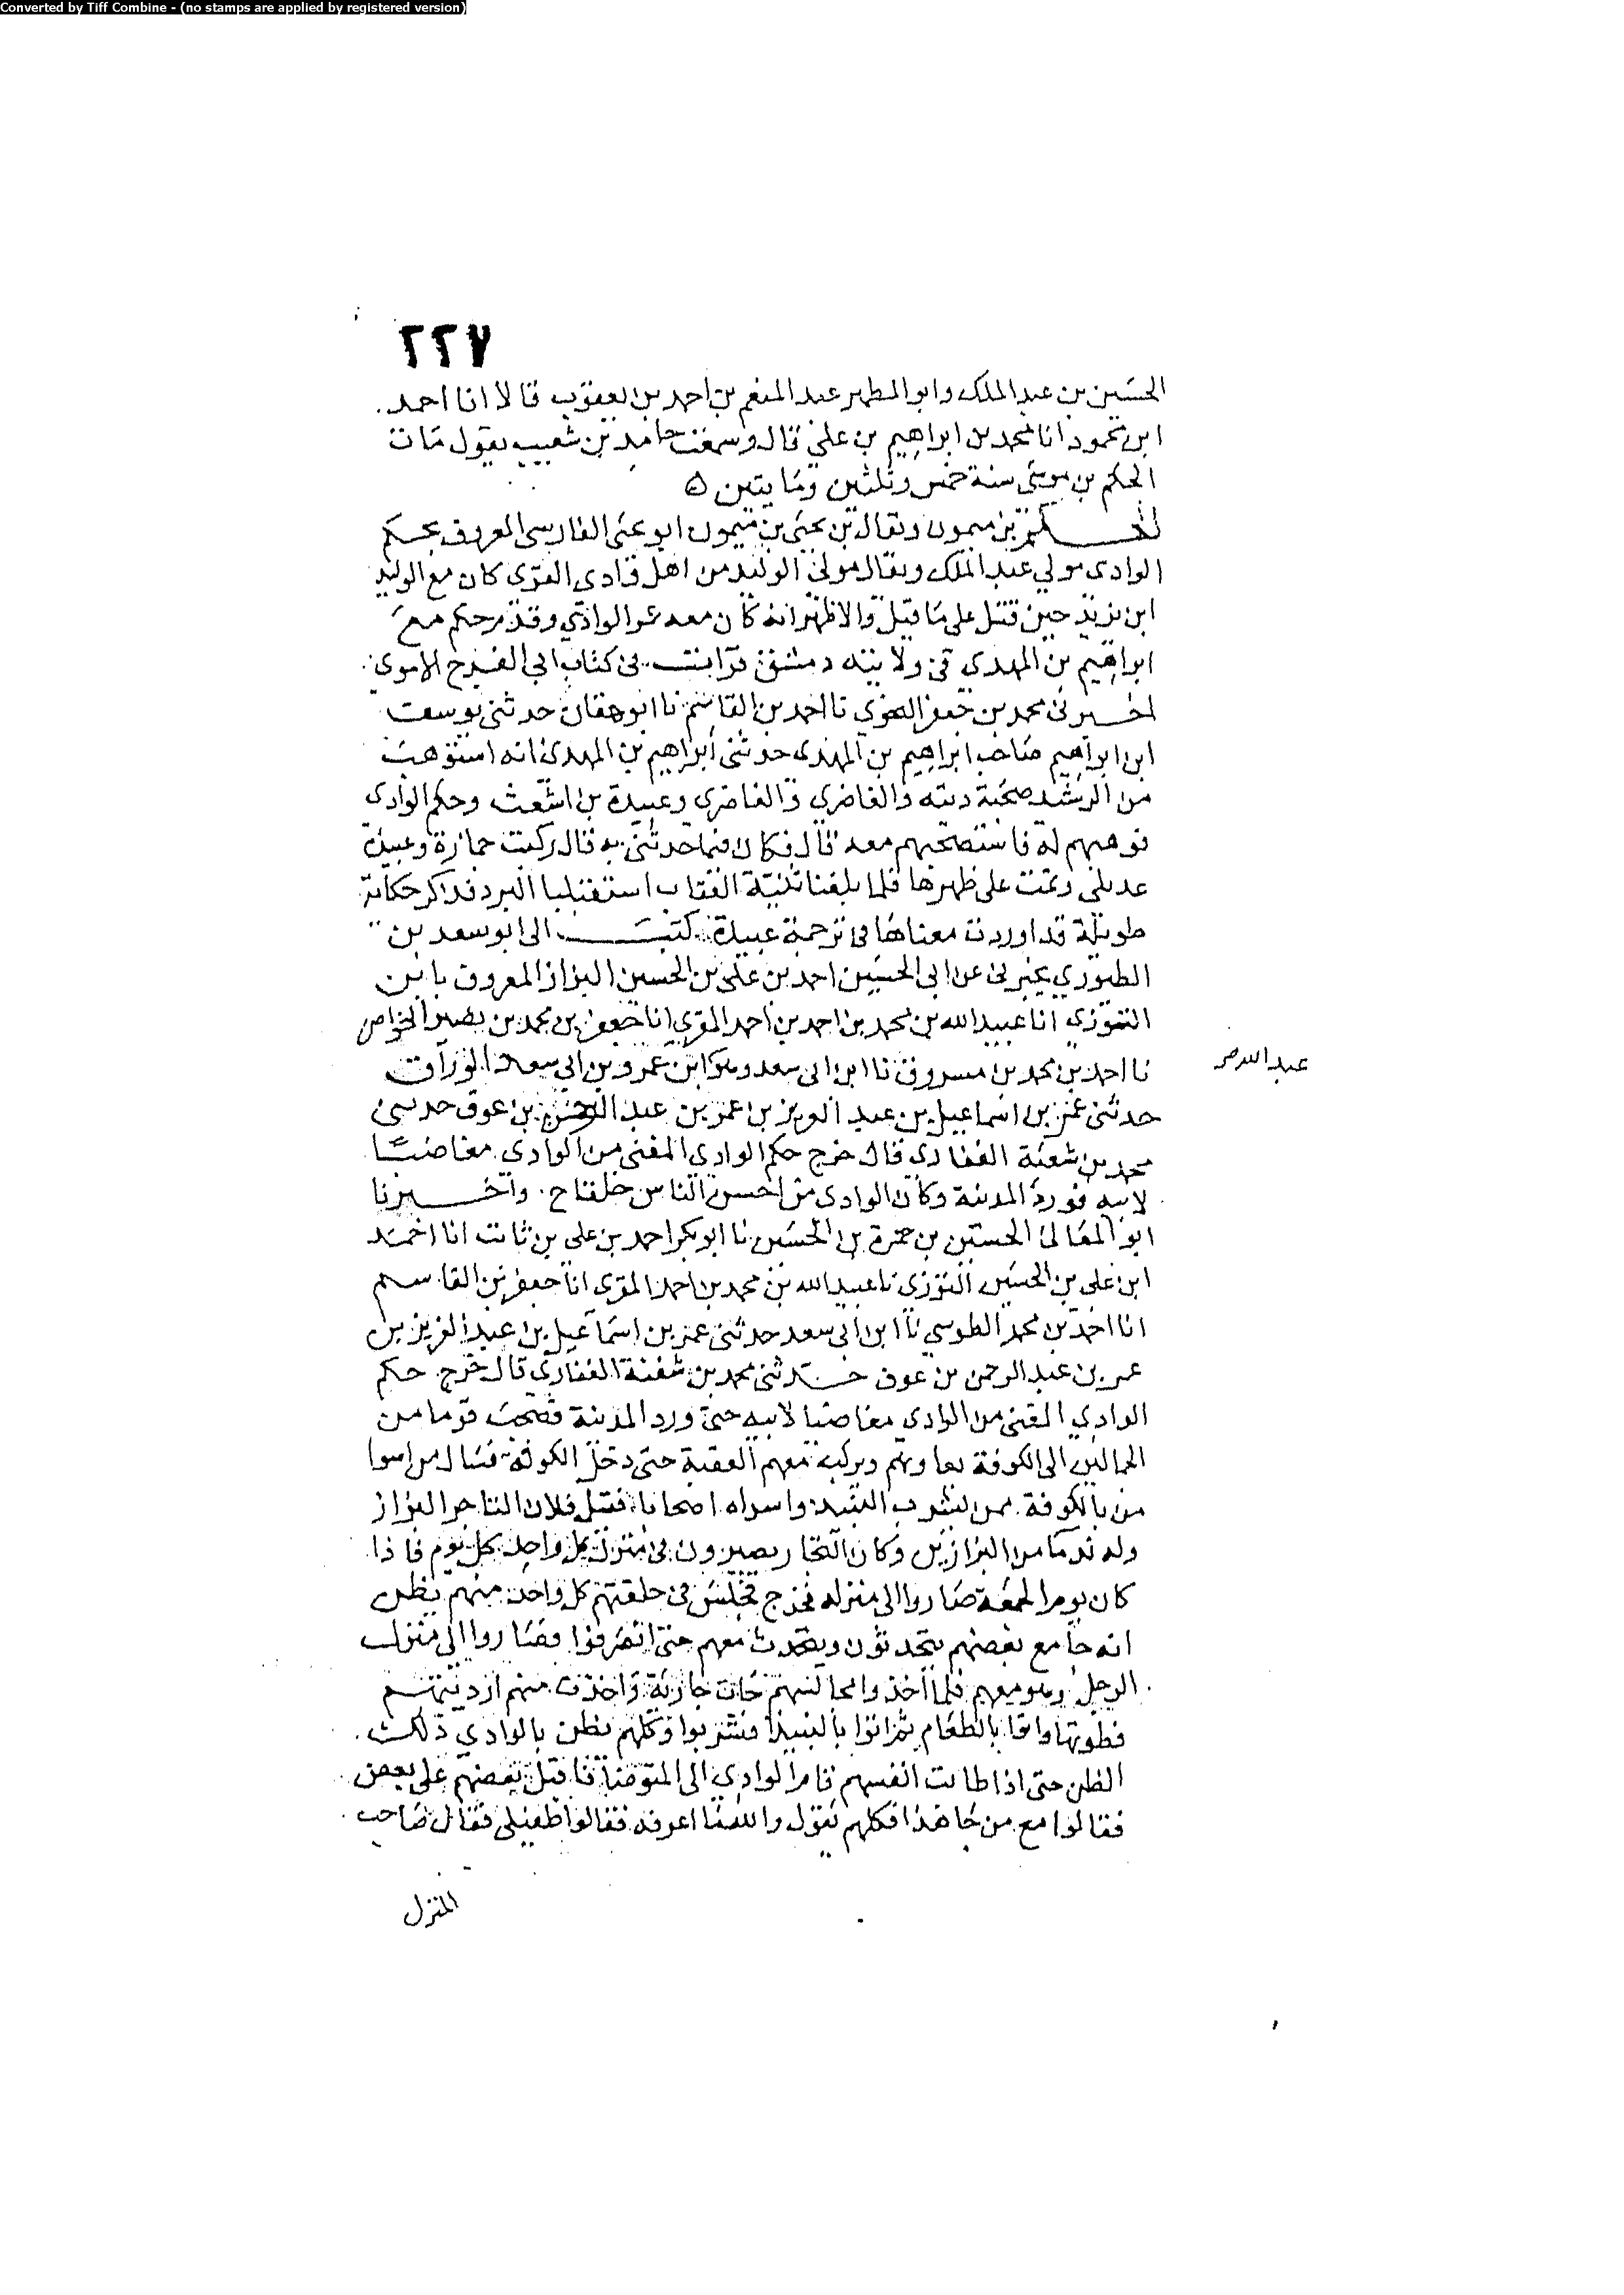 Converted by Tiff Combine - (no stamps are applied by registered version)
٢٢٧
الحسين بن عبد الملك وابو المطهر عبد المنعم بن احمد بن يعقوب قالا انا احمد
ابن محمود انا محمد بن ابراهيم بن علي قال وسمعت حامد بن شعيب يقول مات
الحكم بن موسى سنة خمس وثلثين ومايتين ه
الحكم بن ميمون ويقال بن يحيى بن ميمون ابو يحيى الفارسي المعروف بحكم
الوادي مولي عبد الملك ويقال مولى الوليد من اهل وادى القرى كان مع الوليد
ابن يزيد حين قتل على ما قيل والاظهر انه كان معه عمر الوادي وقدم حكم مع
ابراهيم بن المهدي في ولايته دمشق قرات في كتاب ابي الفرج الاموي
اخبرني محمد بن جعفر النحوي نا احمد بن القاسم نا ابو هفان حدثني يوسف
ابن ابراهيم صاحب ابراهيم بن المهدي حدثني ابراهيم بن المهدي انه استوهب
من الرشيد صحبة دبية والغاضري وعبيدة بن اشعث وحكم الوادي
فوهبهم له فاستصحبهم معه قال فكان فيما حدثني به قال ركبت حمازة وعبيدة
عديلي ونمت على ظهرها فلما بلغنا ثنية العقاب استقبلنا البرد فذكر حكاية
طويلة قد اوردت معناها في ترجمة عبيدة كتب الى ابو سعد بن
الطيوري يخبرني عن ابي الحسين احمد بن علي بن الحسين البزاز المعروف بابن
التوزي انا عبيد الله بن محمد بن احمد بن احمد المقري انا جعفر بن محمد بن نصير الخواص
نا احمد بن محمد بن مسروق نا ابن ابي سعد وهو ابن عمرو بن ابي سعد الوراق
عبد الله صح
حدثني عمر بن اسماعيل بن عبد العزيز بن عمر بن عبد الرحمن بن عوف حدثني
محمد بن شعبة الغفاري قال خرج حكم الوادي المغني من الوادي مغاضبا
لابيه فورد المدينة وكان الوادي من احسن الناس خلقا ح واخبرنا
ابو المعالي الحسين بن حمزة بن الحسين نا ابو بكر احمد بن علي بن ثابت انا احمد
ابن علي بن الحسين التوزي نا عبيد الله بن محمد بن احمد المقري انا جعفر بن القاسم
انا احمد بن محمد الطوسي نا ابن ابي سعد حدثني عمر بن اسماعيل بن عبد العزيز بن
عمر بن عبد الرحمن بن عوف حدثني محمد بن شعبة الغفاري قال خرج حكم
الوادي المغني من الوادي مغاضبا لابيه حتى ورد المدينة فصحب قوما من
الجمالين الى الكوفة يعاونهم ويركب معهم العقبة حتى دخل الكوفة فسال من اسوا
من بالكوفة ممن يشرب النبيذ واسراه اصحابا فقيل فلان التاجر البزاز
وله ندما من البزازين وكان التجار يصيرون في منزل كل واحد كل يوم فاذا
كان يوم الجمعة صاروا الى منزله فخرج فجلس في حلقتهم كل واحد منهم يظن
انه جا مع بعضهم يتحدثون ويتحدث معهم حتى انصرفوا فصاروا الى منزل
الرجل وهو معهم فلما اخذوا مجالسهم جات جارية واخذت منهم ارديتهم
فطوتها واتوا بالطعام ثم اتوا بالنبيذ فشربوا وكلهم يظن بالوادي ذلك
الظن حتى اذا طابت انفسهم قام الوادي الى المتوضا فاقبل بعضهم على بعض
فقالوا مع من جا هذا فكلهم يقول والله ما اعرفه فقالوا طفيلي فقال صاحب
المنزل